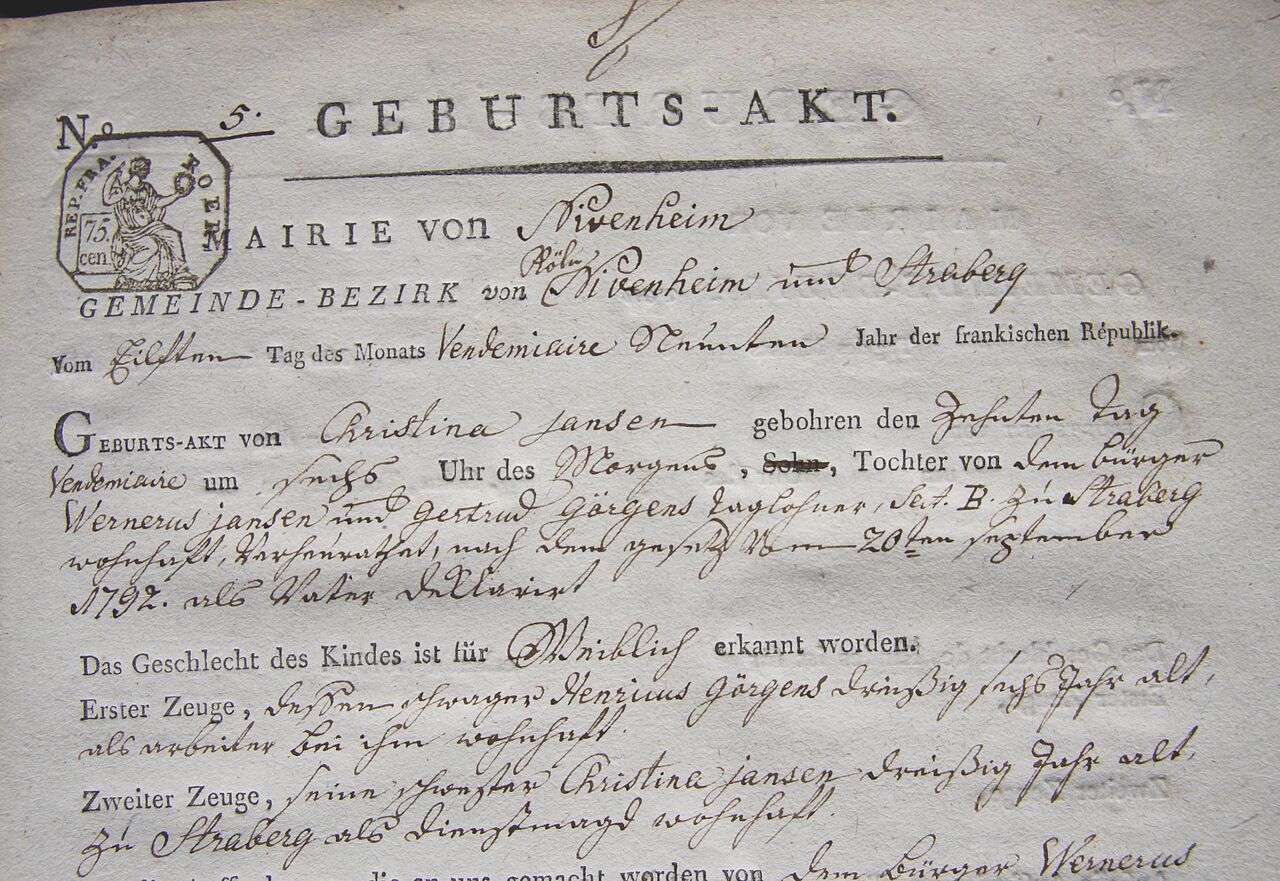 N.º 5. GEBURTS-AKT.
REP. FRA.
75. cen.
MAIRIE von Nivenheim
Köln
GEMEINDE-BEZIRK von Nivenheim und Straberg
Vom Eilften Tag des Monats Vendemiaire Neunten Jahr der frankischen Républik.
GEBURTS-AKT von Christina jansen gebohren den Zehnten Tag
Vendemiaire um sechs Uhr des Morgens, Sohn, Tochter von dem bürger
Wernerus jansen und gertrud Görgens taglohner, Sect. B. zu Straberg
wohnhaft, Verheurathet, nach dem gesetz vom 20ten september
1792. als Vater deklarirt
Das Geschlecht des Kindes ist für Weiblich erkannt worden.
Erster Zeuge, dessen schwager Henricus görgens dreißig sechs Jahr alt,
als arbeiter bei ihm wohnhaft.
Zweiter Zeuge, seine schwester Christina jansen dreißig Jahr alt,
zu Straberg als dienstmagd wohnhaft.
die an uns gemacht worden von dem bürger Wernerus